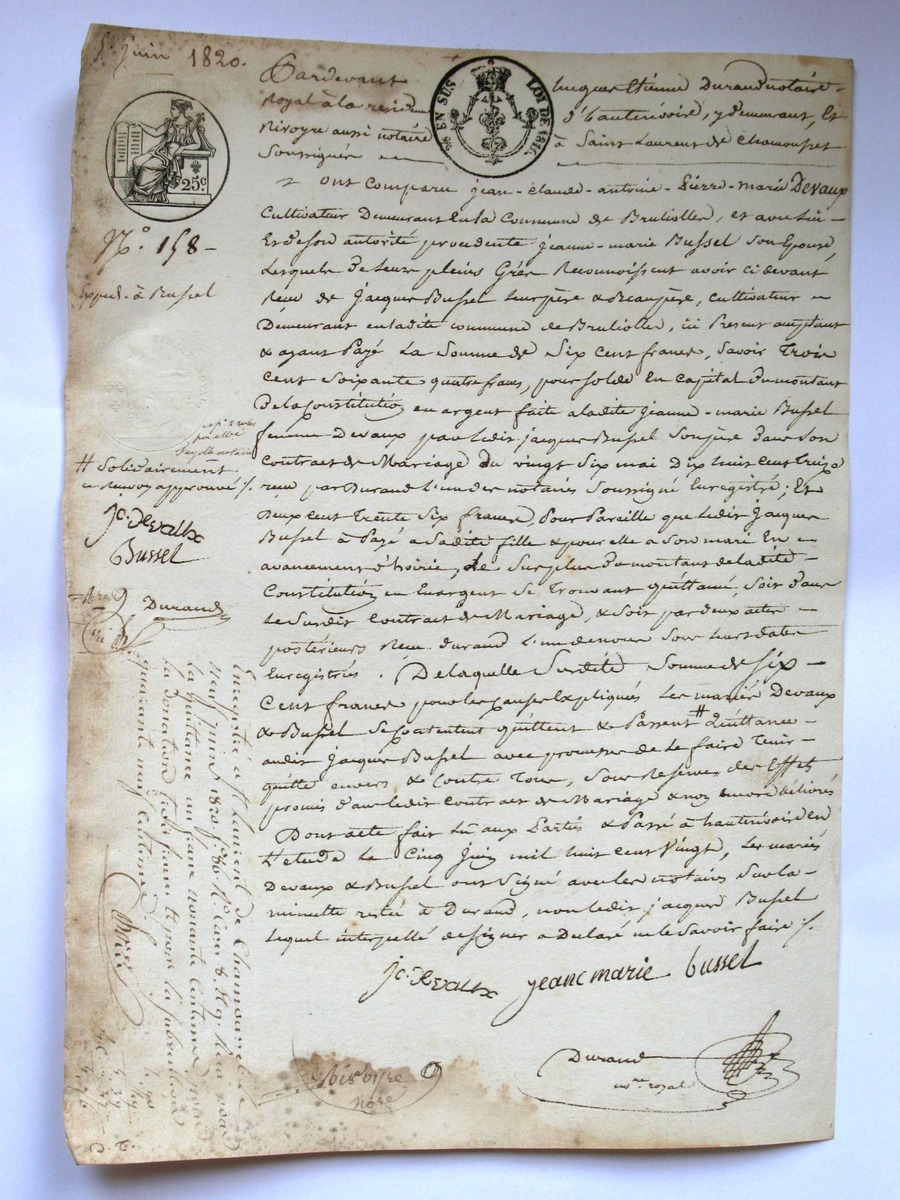 5 juin 1820.
Pardevant jacques Etienne Durand notaire
Royal à la d'hauterivoire, y demeurant, Et
Nisoyre aussi notaire à Saint Laurent de Chamousset
Soussignés
EN SUS LOI DE 1816
25c
ont comparu jean-claude-antoine-Pierre-marie Devaux
Cultivateur Demeurant En la Commune de Brulioller, et avec lui
Et de son autorité procédente jeanne-marie Bussel Son Epouse,
Lesquels de leurs pleins Grés Reconnoissent avoir ci devant
Reçu de jacques Bussel leur père & Beaupère, cultivateur
Demeurant en ladite commune de Brulioller, ici Present acceptant
& ayant Payé La Somme de Six Cent francs, Savoir Trois
Cent Soixante quatre francs, pour solde En capital du montant
De la Constitution en argent faite à ladite jeanne-marie Bussel
femme Devaux par Ledit jacques Bussel Son père dans Son
Contrat de Mariage du vingt Six mai Dix huit cent treize
reçu par Durand l'un des notaires Soussigné Enregistré; Et
Deux cent Trente Six francs, Pour Pareille que ledit Jacques
Bussel à Payé a Sadite fille & pour elle à Son mari En
avancement d'hoirie, Le Surplus du montant de ladite
Constitution en argent Se Trouvant quittancé, Soit dans
Le Susdit Contrat de Mariage, & Soit par deux actes
postérieurs Reçu durand L'un de nous Sous leurs dates
Enregistrés. De laquelle Susdite Somme de Six
Cent francs pour les causes Expliquées Les mariés Devaux
& Bussel Se contentent quittent & Passent # Quittance
audit jacques Bussel avec promesse de le faire Tenir
quitte envers & Contre Tous, Sous Reserves des Effets
promis dans ledit contrat de Mariage & non encore délivrés
Dont acte fait Lû aux Parties & Passé à hauterivoire en
L'etude Le Cinq juin mil huit cent Vingt, Les mariés
Devaux & Bussel ont Signé avec les notaires Sur la
minutte restée à Durand, non ledit jacques Bussel
Lequel interpellé de signer a Declaré ne le Savoir faire /.
Jc. Devaux jeane marie bussel
Durand
no.re royal
Nisoyre
nore
N.o 158
Exped. à Bussel
# Solidairement
ce renvoy approuvé /.
Jc. Devaux
Bussel
Durand
Enregistré à St Laurent de Chamousset Le
neuf juin 1820 Reçu pour
la quittance un franc nonante Centimes pour
la donation
quarante neuf Centimes